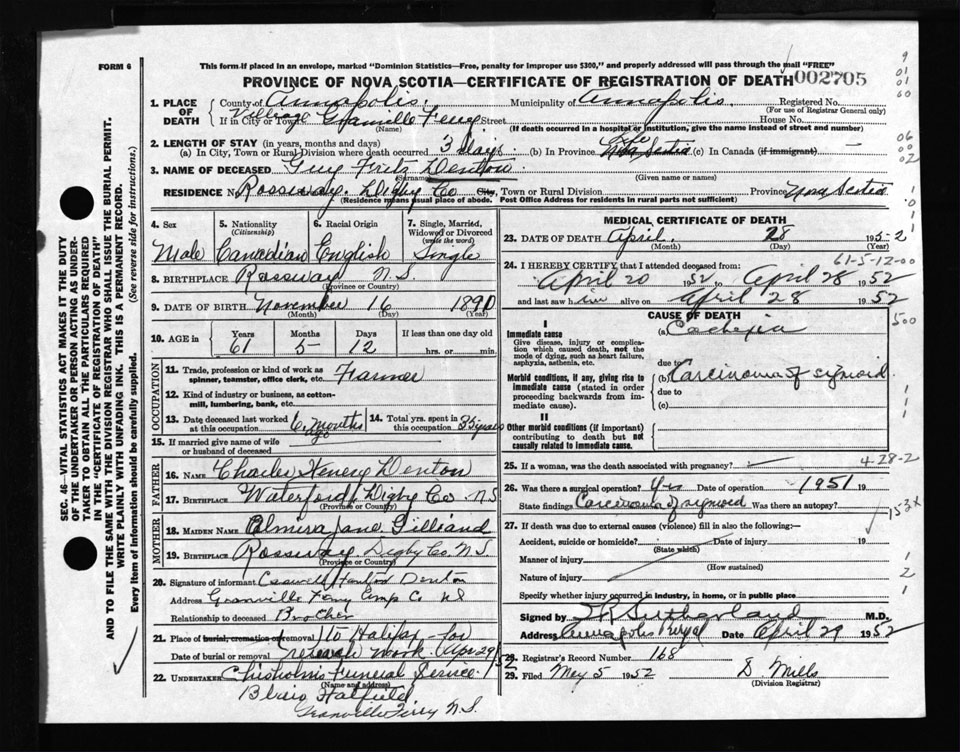 FORM 6
This form if placed in an envelope, marked "Dominion Statistics—Free, penalty for improper use $300," and properly addressed will pass through the mail "FREE"
PROVINCE OF NOVA SCOTIA—CERTIFICATE OF REGISTRATION OF DEATH 002705
1. PLACE OF DEATH County of Annapolis. Municipality of Annapolis. Registered No.
(For use of Registrar General only)
If in City or Town Village Granville Ferry Street House No.
(Name) (If death occurred in a hospital or institution, give the name instead of street and number)
2. LENGTH OF STAY (in years, months and days)
(a) In City, Town or Rural Division where death occurred 3 days (b) In Province Life Nova Scotia (c) In Canada (if immigrant) —
3. NAME OF DECEASED Guy Fritz Denton
(Surname) (Given name or names)
RESIDENCE No. Rossway. Digby Co City, Town or Rural Division Province Nova Scotia
(Residence means usual place of abode. Post Office Address for residents in rural parts not sufficient)
4. Sex 5. Nationality (Citizenship) 6. Racial Origin 7. Single, Married, Widowed or Divorced (write the word)
Male Canadian English Single
8. BIRTHPLACE Rossway N.S.
(Province or Country)
9. DATE OF BIRTH November 16 1890
(Month) (Day) (Year)
10. AGE in Years Months Days If less than one day old
61 5 12 hrs. or min.
OCCUPATION
11. Trade, profession or kind of work as spinner, teamster, office clerk, etc. Farmer
12. Kind of industry or business, as cotton-mill, lumbering, bank, etc.
13. Date deceased last worked at this occupation 6 months ago 14. Total yrs. spent in this occupation 35 years
15. If married give name of wife or husband of deceased
FATHER
16. NAME Charles Henery Denton
17. BIRTHPLACE Waterford Digby Co. N.S
(Province or Country)
MOTHER
18. MAIDEN NAME Elmira Jane Gilliand
19. BIRTHPLACE Rossway Digby Co. N.S
(Province or Country)
20. Signature of informant Denton
Address Granville Ferry Anap Co NS
Relationship to deceased Brother
21. Place of burial, cremation or removal to Halifax - for
research work.
Date of burial or removal Apr 29/52
22. UNDERTAKER Chisholms Funeral Service
(Name and address)
Blair Hatfield
Granville Ferry N.S.
MEDICAL CERTIFICATE OF DEATH
23. DATE OF DEATH April 28 1952
(Month) (Day) (Year)
61-5-12-00
24. I HEREBY CERTIFY that I attended deceased from:
April 20 1952 to April 28 1952
and last saw him alive on April 28 1952
CAUSE OF DEATH
I
Immediate cause (a) Cachexia
Give disease, injury or complication which caused death, not the mode of dying, such as heart failure, asphyxia, asthenia, etc.
due to
Morbid conditions, if any, giving rise to immediate cause (stated in order proceeding backwards from immediate cause). (b) Carcinoma of sigmoid
due to
(c)
II
Other morbid conditions (if important) contributing to death but not causally related to immediate cause.
25. If a woman, was the death associated with pregnancy? 4-28-2
26. Was there a surgical operation? Yes Date of operation 1951 19
State findings Carcinoma of sigmoid Was there an autopsy?
153x
27. If death was due to external causes (violence) fill in also the following:—
Accident, suicide or homicide? Date of injury 19
(State which)
Manner of injury
(How sustained)
Nature of injury
Specify whether injury occurred in industry, in home, or in public place
Signed by Sutherland M.D.
Address Annapolis Royal Date April 29 1952
28. Registrar's Record Number 168
29. Filed May 5 1952 D. Mills
(Division Registrar)
SEC. 46—VITAL STATISTICS ACT MAKES IT THE DUTY
OF THE UNDERTAKER OR PERSON ACTING AS UNDER-
TAKER TO OBTAIN ALL THE PARTICULARS REQUIRED
IN THE "CERTIFICATE OF REGISTRATION OF DEATH"
AND TO FILE THE SAME WITH THE DIVISION REGISTRAR WHO SHALL ISSUE THE BURIAL PERMIT.
WRITE PLAINLY WITH UNFADING INK. THIS IS A PERMANENT RECORD.
Every item of information should be carefully supplied. (See reverse side for instructions.)
9
01
01
60
06
00
02
500